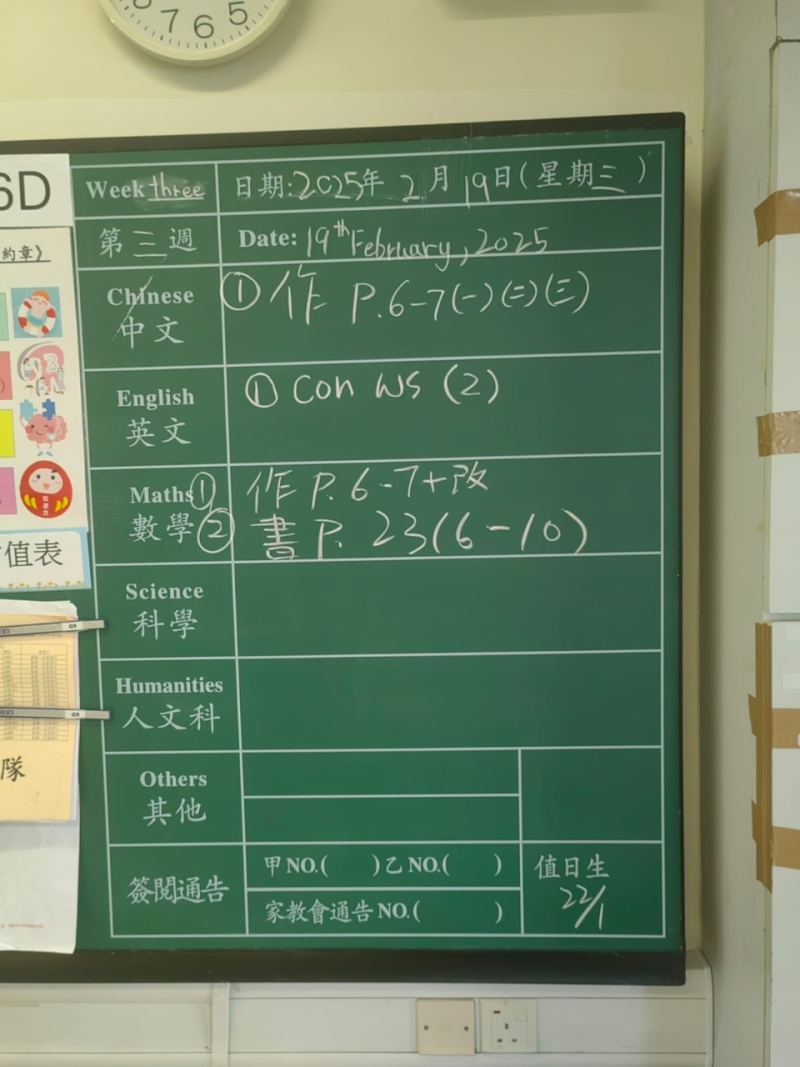 7 6 5
6D
Week three 日期:2025年 2月 19日(星期三)
第三週 Date: 19th February, 2025
約章》
Chinese ① 作 P.6-7(一)(二)(三)
中文
English ① Con WS (2)
英文
Maths ① 作 P. 6-7+改
數學 ② 書 P. 23(6-10)
值表
Science
科學
Humanities
人文科
隊
Others
其他
簽閱通告 甲NO.( )乙NO.( ) 值日生
家教會通告NO.( ) 22/1